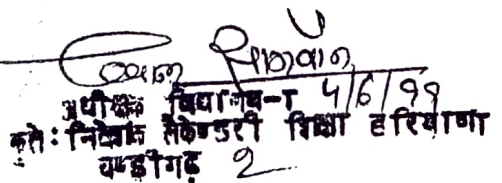 अधीक्षक विद्यालय-I 4/6/99
कृते: निदेशक सैकेण्डरी शिक्षा हरियाणा
चण्डीगढ़ 2